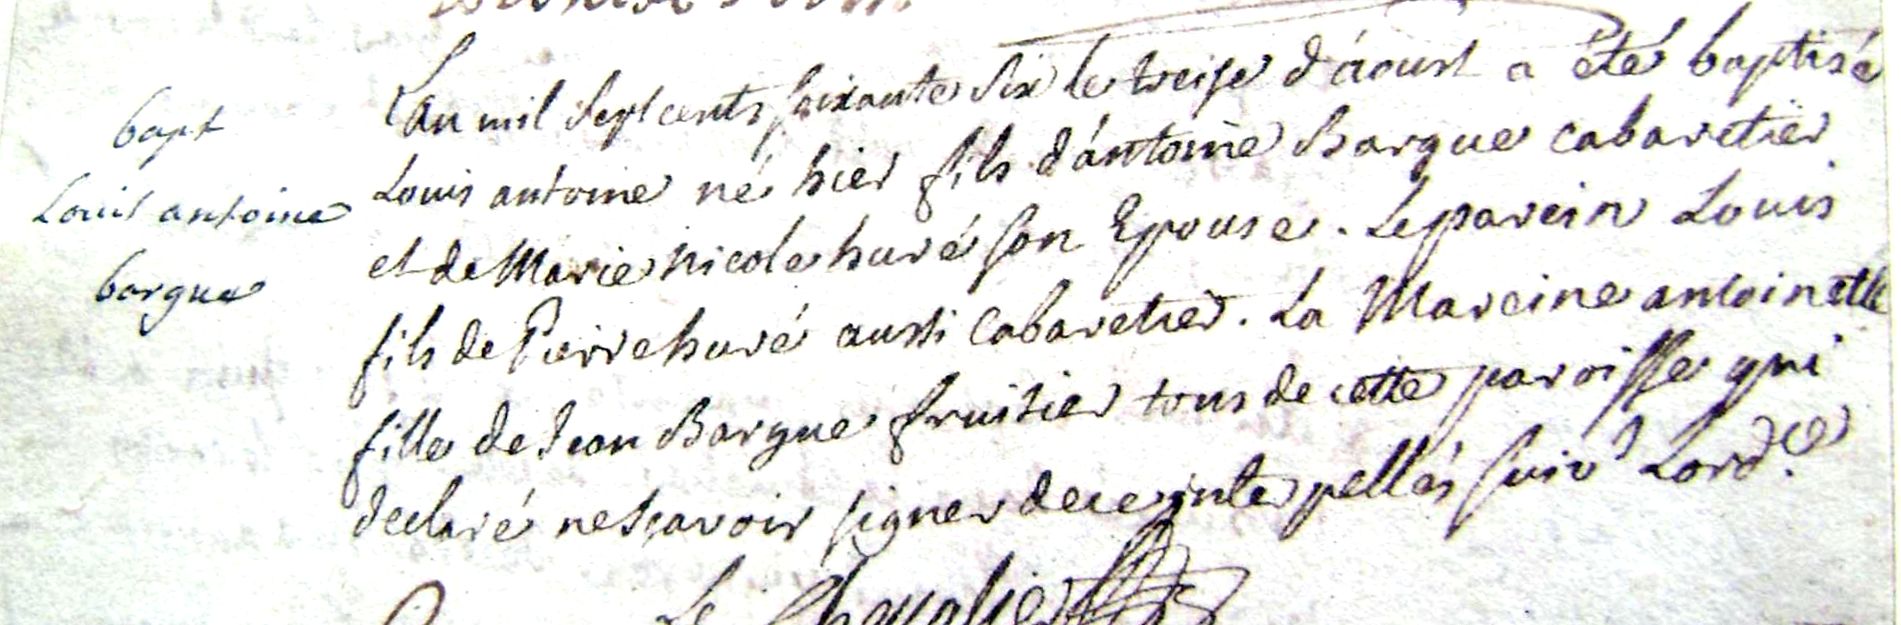 bapt
Louis antoine
bargue
L'an mil sept cents soixante six le treise d'áoust a été baptisé
Louis antoine né hier fils d'ántoine Bargue cabaretier
et de Marie nicole huré son Epouse. Le parein Louis
fils de Pierre huré aussi Cabaretier. La Mareine antoinette
fille de Jean Bargue fruitier tous de cette paroisse qui
declaré ne sçavoir signer de ce interpellés suiv^t Lord^ce.
Le Chevalier